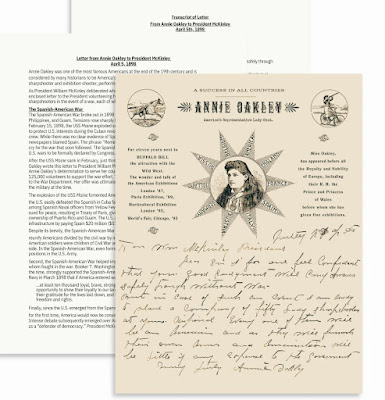 Transcript of Letter
From Annie Oakley to President McKinley
April 5th, 1898
safely through
Letter from Annie Oakley to President McKinley
April 5, 1898
Annie Oakley was one of the most famous Americans at the end of the 19th century and is
considered by many historians to be America's
sharpshooter and exhibition shooter, perform
As President William McKinley deliberated wh
and sent letter to the President volunteering h
sharpshooters in the event of a war, each of w
The Spanish-American War
The Spanish-American War broke out in 1898
Philippines, and Guam. Tensions rose sharply
February 15, 1898, the USS Maine exploded in
to protect U.S. interests during the Cuban revo
crew. While there was no clear evidence of Spa
newspapers blamed Spain. The phrase "Reme
cry for the war that soon followed. The Spanish
U.S. was to be formally declared by Congress.
After the USS Maine sank in February, just thre
Oakley wrote this letter to President William M
Annie Oakley's determination to serve her cou
125,000 volunteers to support the war effort,
to the War Department. Her offer was ultimate
the military at the time.
The explosion of the USS Maine fomented Ame
The U.S. easily defeated the Spanish in Cuba b
among Spanish Naval officers from Yellow Feve
sued for peace, resulting in Treaty of Paris, gr
ownership of Puerto Rico and Guam. The U.S.
infrastructure by paying Spain $20 million ($5
Despite its brevity, the Spanish-American War
reunify Americans divided by the civil war by
American soldiers were children of Civil War v
side. In the Spanish-American War, even forme
positions in the U.S. Army.
Second, the Spanish-American War helped in
whom fought in the war. Booker T. Washington
the time, strongly supported the Spanish-Ame
Navy in March 1898 that if America entered w
...at least ten thousand loyal, brave, strong
opportunity to show their loyalty to our lan
their gratitude for the lives laid down, and
freedom and rights.
Finally, since the U.S. emerged from the Spani
for the first time, America would now be consid
Intense debate subsequently emerged over Am
as a "defender of democracy." President McKinl
A SUCCESS IN ALL COUNTRIES
ANNIE OAKLEY
America's Representative Lady Shot.
For eleven years next to
BUFFALO BILL
the attraction with the
Wild West.
The wonder and talk of
the American Exhibitions
London '87,
Paris Exhibition, '89,
Horticultural Exhibition
London '92,
World's Fair, Chicago, '93
Miss Oakley,
has appeared before all
the Royalty and Nobility
of Europe, including
their R. H. the
Prince and Princess
of Wales
before whom she has
given five exhibitions.
Hon Wm McKinley President
Dear Sir I for one feel Confident
that your good judgment will carry America
safely through without War
But in case of such an event I am ready
to place a Company of fifty lady sharpshooters
at your disposal. Every one of them will
be an American and as they will furnish
their own Arms and Ammunition will
be little if any expense to the Government
Very truly
Annie Oakley